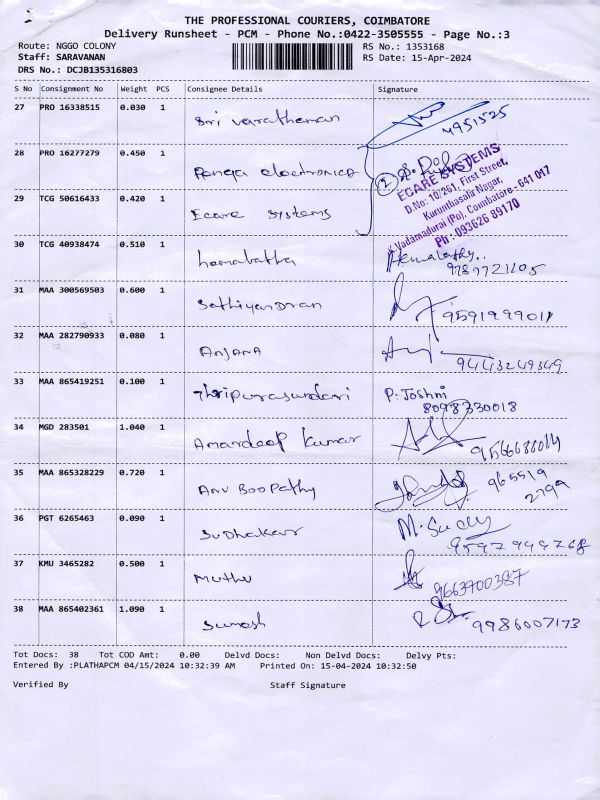 THE PROFESSIONAL COURIERS, COIMBATORE
Delivery Runsheet - PCM - Phone No.:0422-3505555 - Page No.:3
Route: NGGO COLONY RS No.: 1353168
Staff: SARAVANAN RS Date: 15-Apr-2024
DRS No.: DCJB135316803
S No Consignment No Weight PCS Consignee Details Signature
27 PRO 16338515 0.030 1 Sri varatheman
4951525
28 PRO 16277279 0.450 1 Renga electronics
29 TCG 50616433 0.420 1 Ecare systems
2
ECARE SYSTEMS
D.No: 10/261, First Street,
Kurunthasala Nagar,
Vadamadurai (Po), Coimbatore - 641 017
Ph : 093626 89170
30 TCG 40938474 0.510 1 hamalatha Hemalathy..
9789721105
31 MAA 300569503 0.600 1 Sathiyandran 9591999011
32 MAA 282790933 0.080 1 Anjana
9443249349
33 MAA 865419251 0.100 1 Thripurasundari P. Joshni
8098330018
34 MGD 283501 1.040 1 Amardeep Kumar
35 MAA 865328229 0.720 1 Anu Boopathy 965519
2799
36 PGT 6265463 0.090 1 Sudhakar M. Sudy
9597944768
37 KMU 3465282 0.500 1 Muthu 9663700387
38 MAA 865402361 1.090 1 Suresh 9986007173
Tot Docs: 38 Tot COD Amt: 0.00 Delvd Docs: Non Delvd Docs: Delvy Pts:
Entered By :PLATHAPCM 04/15/2024 10:32:39 AM Printed On: 15-04-2024 10:32:50
Verified By Staff Signature